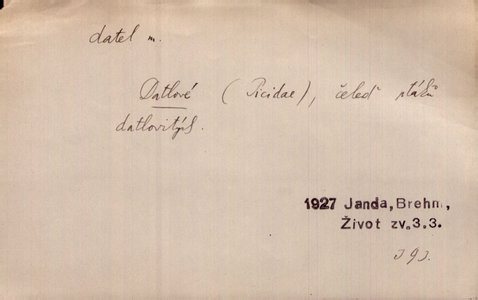 datel m.
Datlové (Picidae), čeleď ptáků
datlovitých.
1927 Janda, Brehm,
Život zv. 3.3.